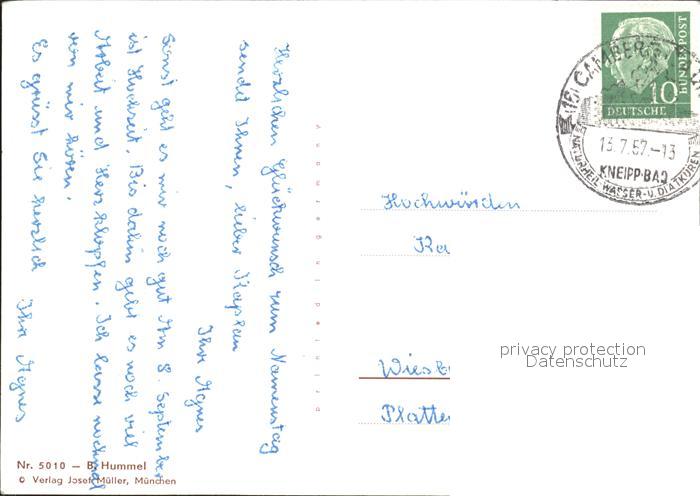 Herzlichen Glückwunsch zum Namenstag
sendet Ihnen, lieber Kaplan
Ihr Agnes
Sonst geht es mir noch gut Am 8. September
ist Hochzeit. Bis dahin gibt es noch viel
Arbeit und Herzklopfen. Ich lasse nochmal
von mir hören.
Es grüsst Sie herzlich
Ihr Agnes
printed in germany
Nr. 5010 — B. Hummel
© Verlag Josef Müller, München
DEUTSCHE BUNDESPOST
10
(16) CAMBERG
13.7.57.-13
KNEIPP-BAD
NATURHEIL WASSER- U. DIÄTKUREN
Hochwürden
Ka
Wiesb
Platte
privacy protection
Datenschutz